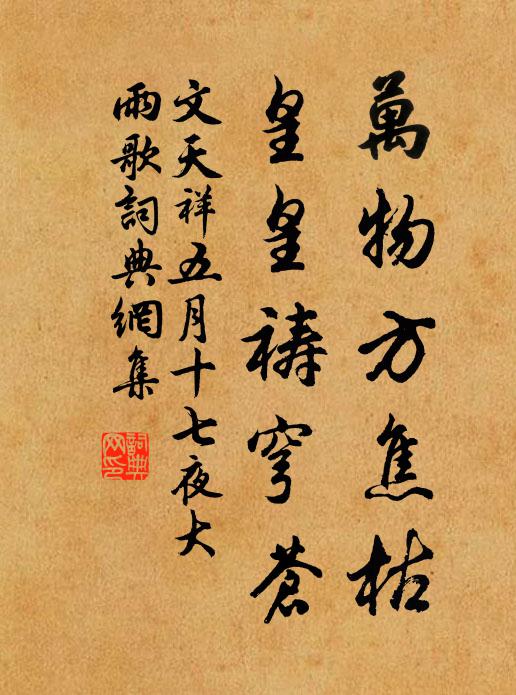 萬物方焦枯
皇皇禱穹蒼
文天祥五月十七夜大
雨歌詞典網集
詞典
网印